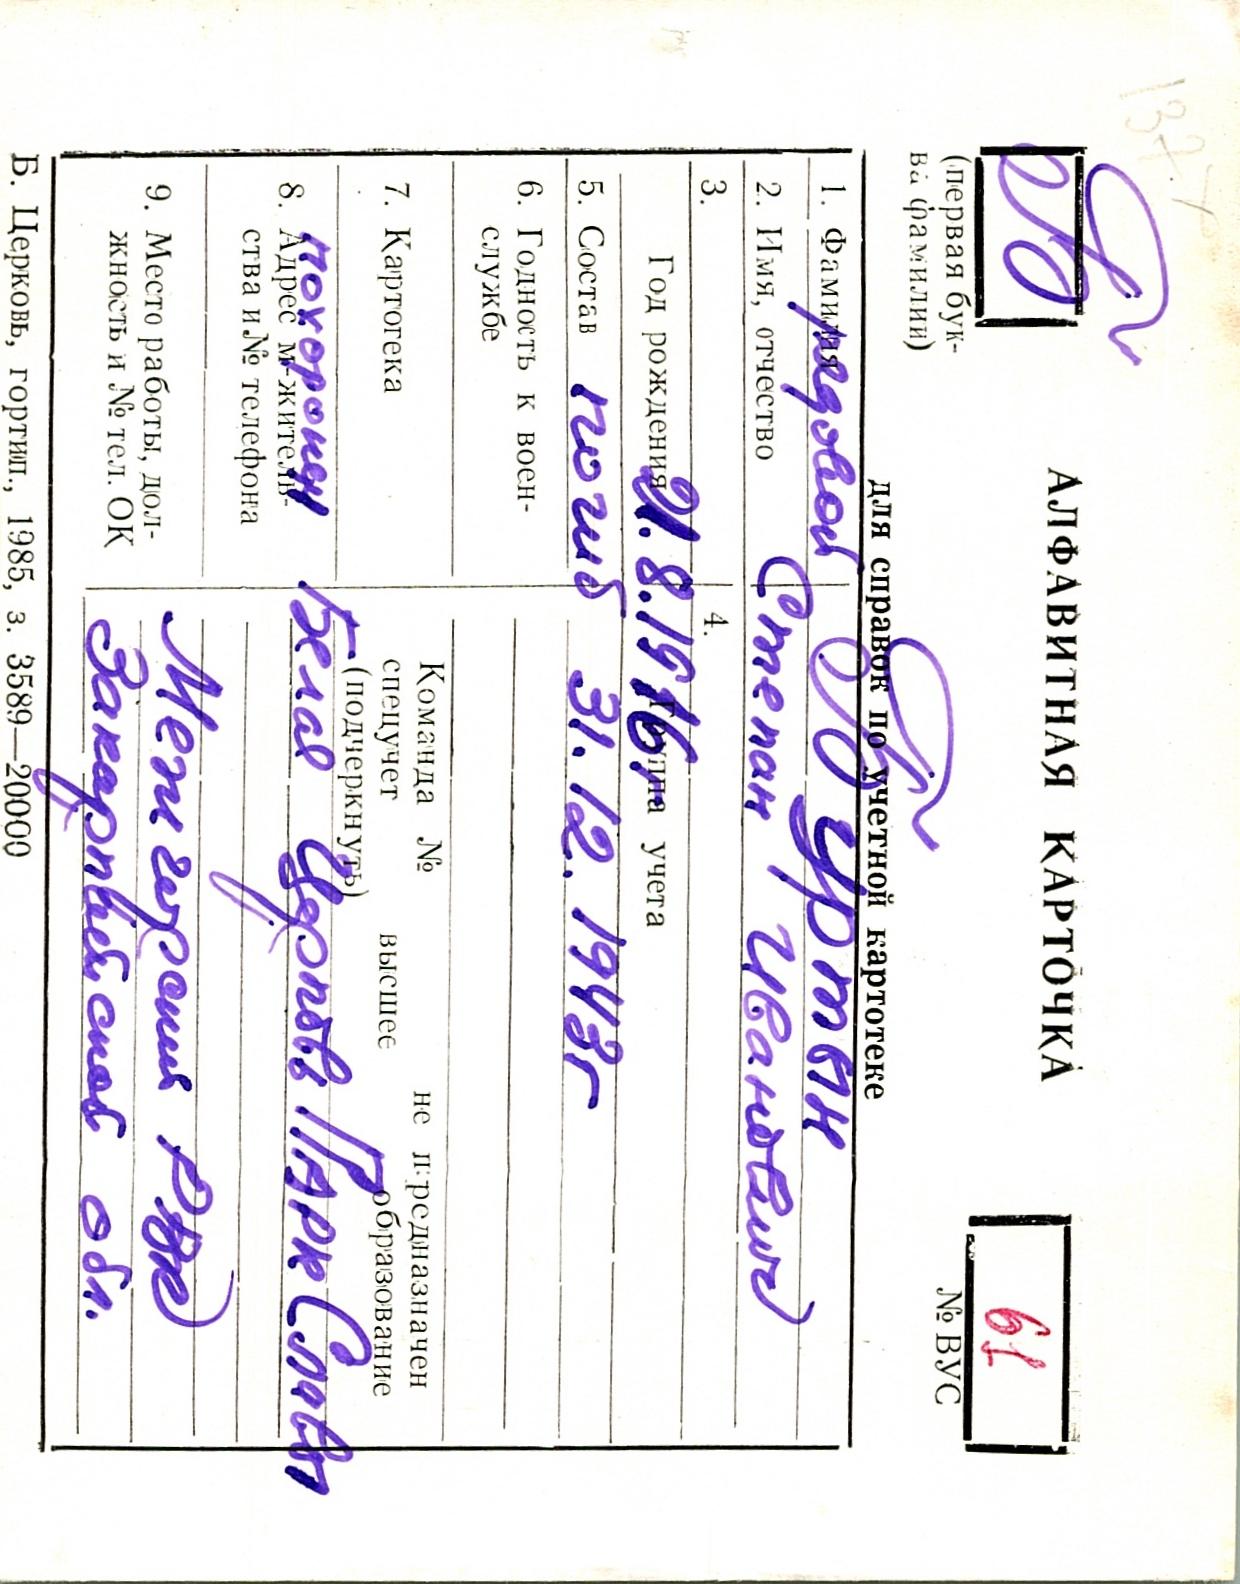 137.7
Ф
АЛФАВИТНАЯ КАРТОЧКА
(первая бук-
ва фамилии)
61
№ ВУС
для справок по учетной картотеке
1. Фамилия
рядовой Фуртак
2. Имя, отчество
Степан Иванович
3.
4.
Год рождения
21.8.1916г
Группа учета
5. Состав
погиб 31.12.1943г
6. Годность к воен-
службе
7. Картотека
Команда № не предназначен
спецучет высшее образование
(подчеркнуть)
8. Адрес м-житель-
ства и № телефона
похоронен Белая Церковь Парк Славы
9. Место работы, дол-
жность и № тел. ОК
Межгорский РВК
Закарпатской обл.
Б. Церковь, гортип., 1985, з. 3589—20000